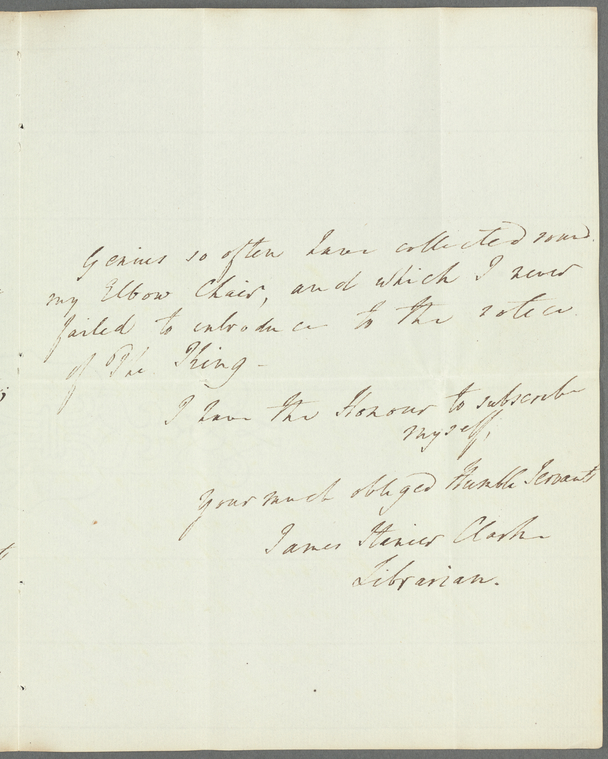 Genius so often have collected round
my Elbow Chair, and which I never
failed to introduce to the notice
of The King –
I have the Honour to subscribe
myself,
Your much obliged Humble Servant
James Stanier Clarke
Librarian.